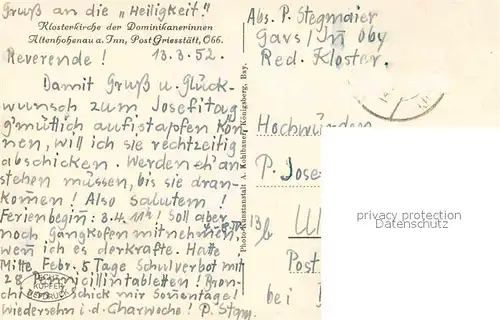 Gruß an die „Heiligkeit“!
Klosterkirche der Dominikanerinnen
Altenhohenau a. Inn, Post Griesstätt, Obb.
13.3.52.
Reverende!
Damit Gruß u. Glück-
wunsch zum Josefitag
g'mütlich aufistapfen kön
nen, will ich sie rechtzeitig
abschicken. Werden eh' an
stehen müssen, bis sie dran-
kommen! Also salutem!
Ferienbeginn: 3.4. 11h! Soll aber
noch Gangkofen mitnehmen,
wenn ich es derkrafte. Hatte
Mitte Febr. 5 Tage Schulverbot mit
28 Penicillintabletten! Bron-
chi schick mir Sonnentage!
Wiedersehn i. d. Charwoche! P. Stgm.
KUPFER
TIEFDRUCK
Photo-Kunstanstalt A. Kohlbauer, Königsberg, Bay.
Abs. P. Stegmaier
Gars / Inn Oby
Red. Kloster.
Hochwürden
P. Jose
13
b
Post
bei
privacy protection
Datenschutz